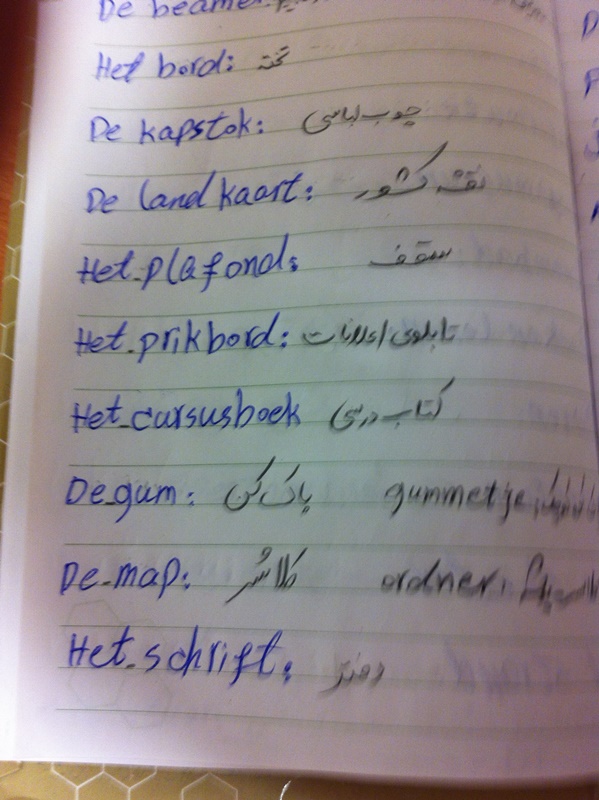 De beamer
Het bord: تخته
De kapstok: چوب لباسی
De landkaart: نقشه کشور
Het plafond: سقف
Het prikbord: تابلوی اعلانات
Het cursusboek کتاب درسی
De gum: پاک کن gummetje
De map: ordner
Het schrift: دفتر